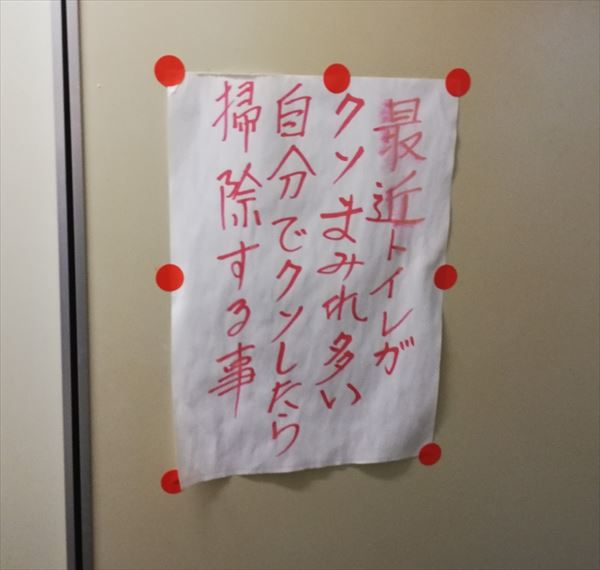 最近トイレが
クソまみれ多い
自分でクソしたら
掃除する事